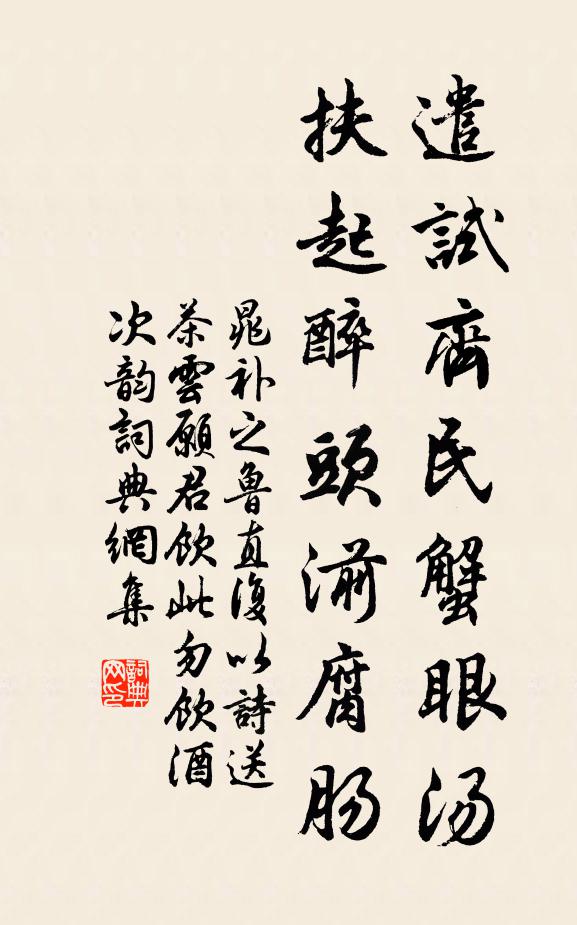 遣試齊民蟹眼湯
扶起醉頭湔腐腸
晁補之魯直復以詩送
茶雲願君飲此勿飲酒
次韵詞典網集
詞典网印